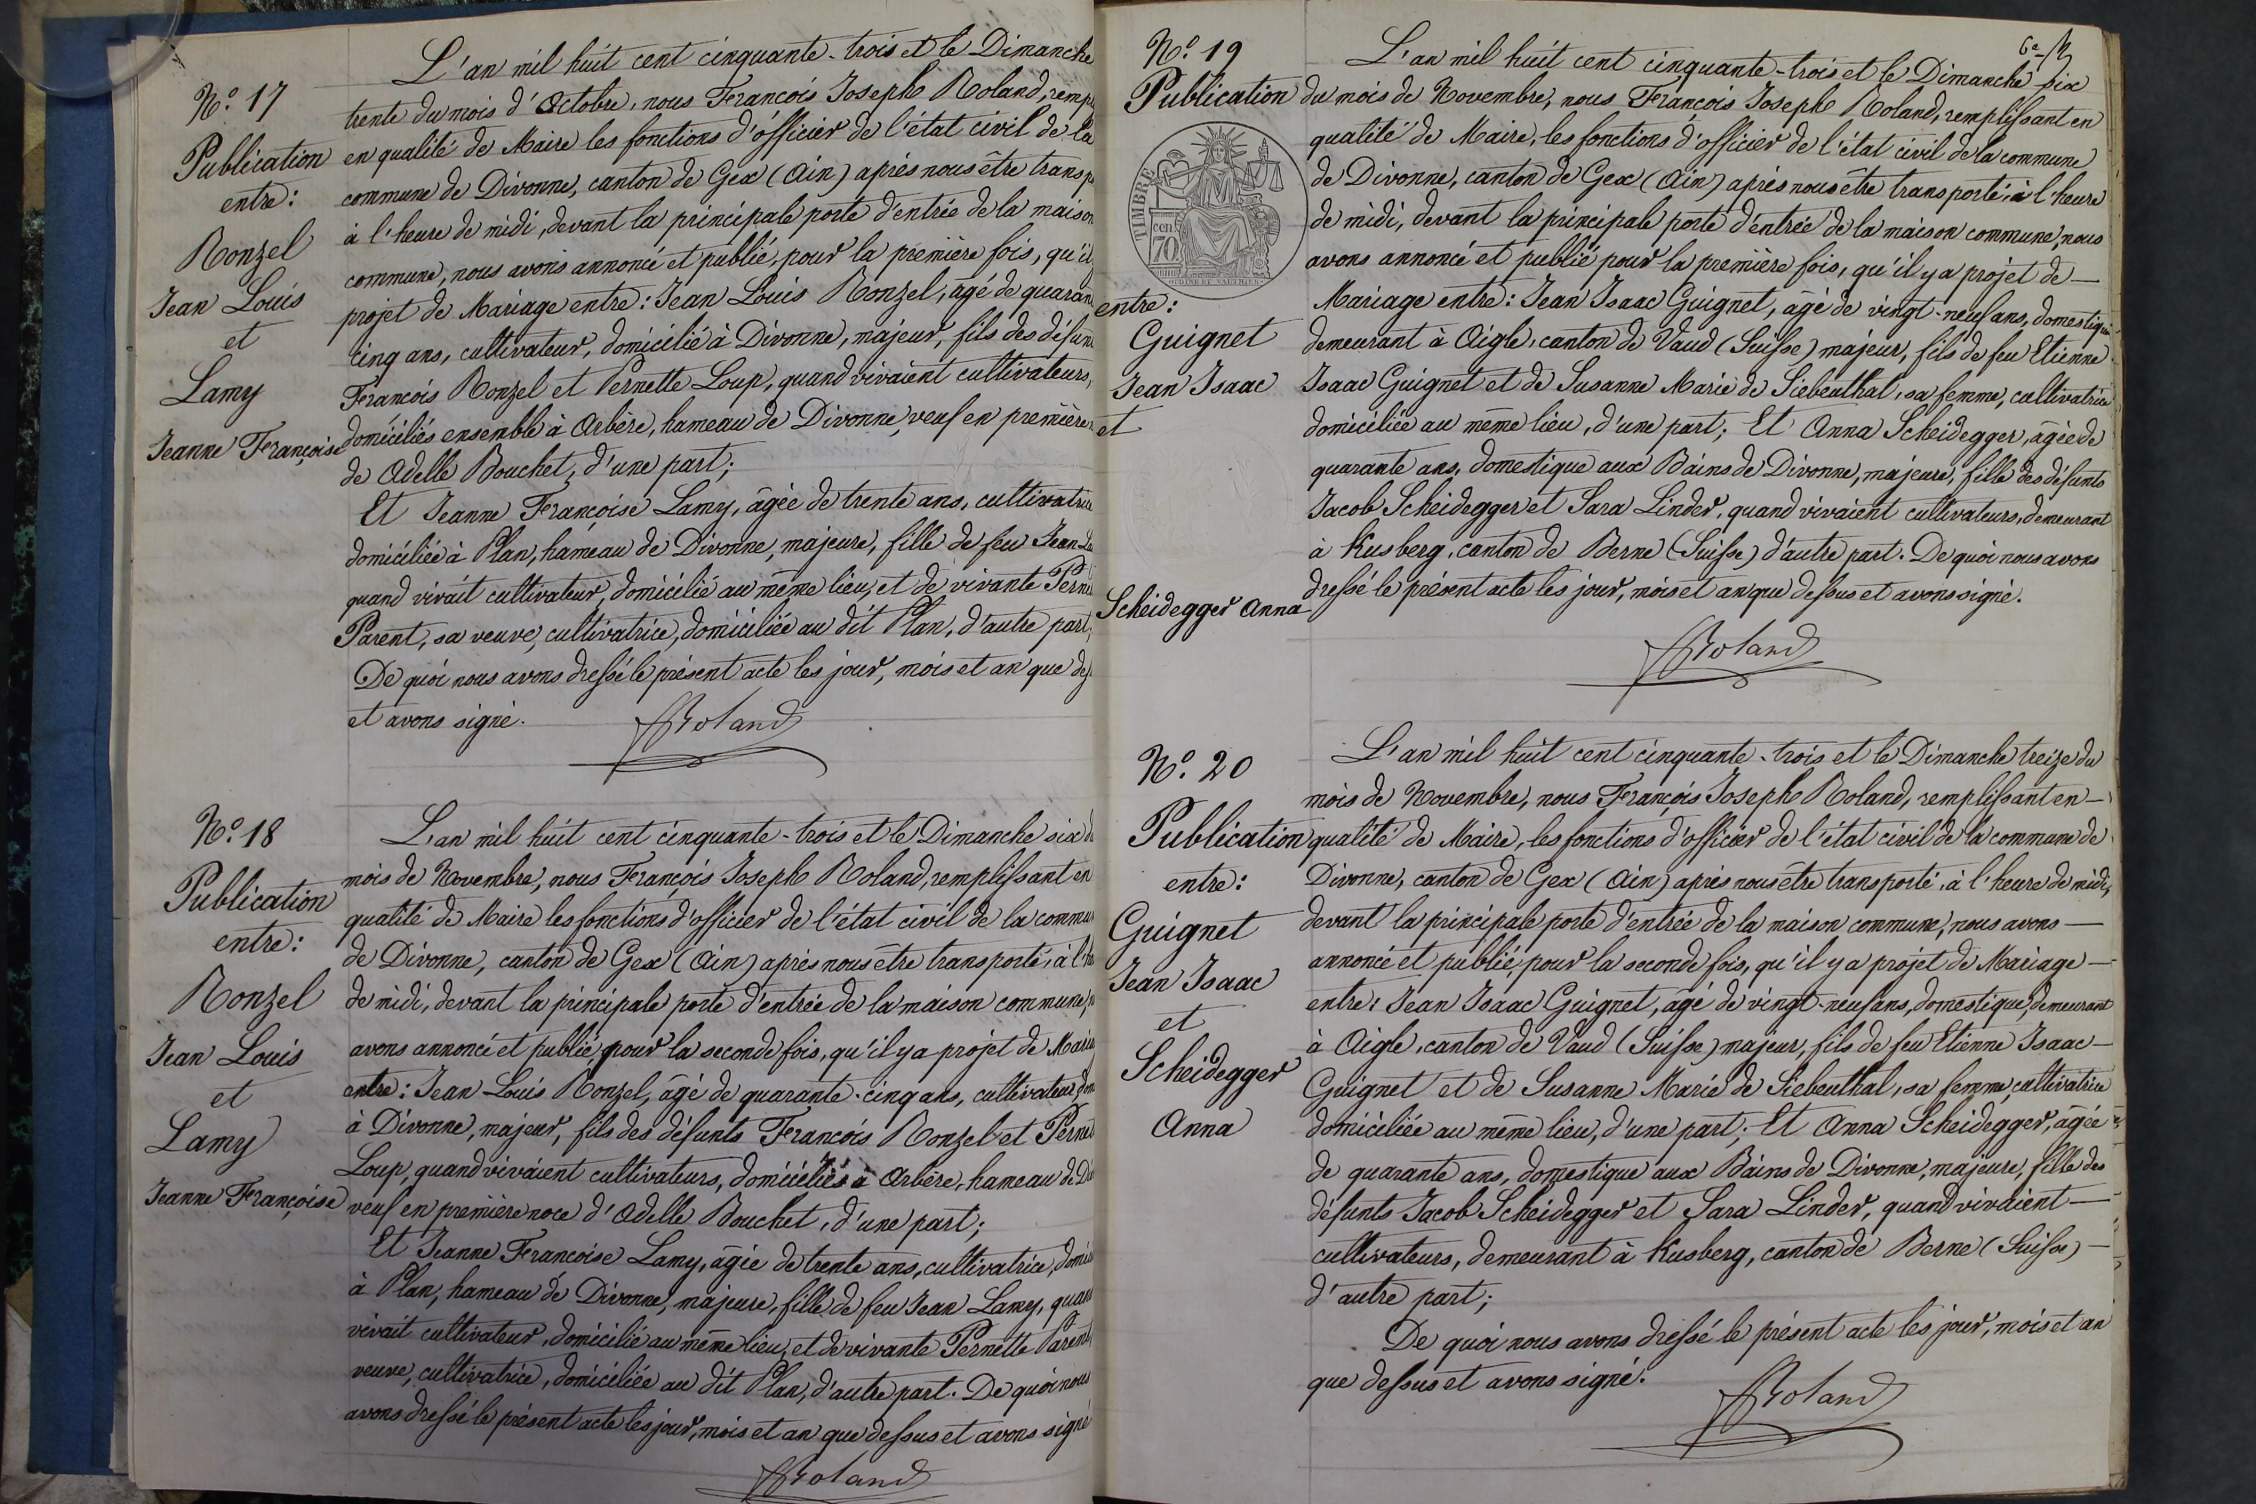 N.° 17
Publication
entre:
Ronzel
Jean Louis
et
Lamy
Jeanne Françoise
L'an mil huit cent cinquante-trois et le Dimanche
trente du mois d'Octobre, nous François Joseph Roland, remp
en qualité de Maire les fonctions d'officier de l'état civil de la
commune de Divonne, canton de Gex (Ain) après nous être transp
à l'heure de midi, devant la principale porte d'entrée de la maison
commune, nous avons annoncé et publié, pour la première fois, qu'il
projet de Mariage entre: Jean Louis Ronzel, âgé de quaran
cinq ans, cultivateur, domicilié à Divonne, majeur, fils des défun
François Ronzel et Pernette Loup, quand vivaient cultivateurs,
domiciliés ensemble à Arbère, hameau de Divonne, veuf en première
de Adelle Bouchet, d'une part;
Et Jeanne Françoise Lamy, âgée de trente ans, cultivatrice
domiciliée à Plan, hameau de Divonne, majeure, fille de feu Jean La
quand vivait cultivateur, domicilié au même lieu, et de vivante Perne
Parent, sa veuve, cultivatrice, domiciliée au dit Plan, d'autre part;
De quoi nous avons dressé le présent acte les jour, mois et an que des
et avons signé.
FRoland
N.° 18
Publication
entre:
Ronzel
Jean Louis
et
Lamy
Jeanne Françoise
L'an mil huit cent cinquante-trois et le Dimanche six d
mois de Novembre, nous François Joseph Roland, remplissant en
qualité de Maire les fonctions d'officier de l'état civil de la commu
de Divonne, canton de Gex (Ain) après nous être transporté, à l'h
de midi, devant la principale porte d'entrée de la maison commune, n
avons annoncé et publié, pour la seconde fois, qu'il y a projet de Maria
entre: Jean Louis Ronzel, âgé de quarante-cinq ans, cultivateur, dom
à Divonne, majeur, fils des défunts François Ronzel et Pernet
Loup, quand vivaient cultivateurs, domiciliés à Arbère, hameau de Div
veuf en première noce d'Adelle Bouchet, d'une part;
Et Jeanne Françoise Lamy, âgée de trente ans, cultivatrice, domici
à Plan, hameau de Divonne, majeure, fille de feu Jean Lamy, quand
vivait cultivateur, domicilié au même lieu, et de vivante Pernette Parent
veuve, cultivatrice, domiciliée au dit Plan, d'autre part. De quoi nous
avons dressé le présent acte les jour, mois et an que dessus et avons signé
FRoland
6e
N.° 19
Publication
TIMBRE
cen
70
entre:
Guignet
Jean Isaac
et
Scheidegger Anna
L'an mil huit cent cinquante-trois et le Dimanche six
du mois de Novembre, nous François Joseph Roland, remplissant en
qualité de Maire, les fonctions d'officier de l'état civil de la commune
de Divonne, canton de Gex (Ain) après nous être transporté, à l'heure
de midi, devant la principale porte d'entrée de la maison commune, nous
avons annoncé et publié pour la première fois, qu'il y a projet de —
Mariage entre: Jean Isaac Guignet, âgé de vingt-neuf ans, domestique
demeurant à Aigle, canton de Vaud (Suisse) majeur, fils de feu Etienne
Isaac Guignet et de Susanne Marie de Siebenthal, sa femme, cultivatrice
domiciliée au même lieu, d'une part; Et Anna Scheidegger, âgée de
quarante ans, domestique aux Bains de Divonne, majeure, fille des défunts
Jacob Scheidegger et Sara Linder, quand vivaient cultivateurs, demeurant
à Kusberg, canton de Berne (Suisse) d'autre part. De quoi nous avons
dressé le présent acte les jour, mois et an que dessus et avons signé.
FRoland
N.° 20
Publication
entre:
Guignet
Jean Isaac
et
Scheidegger
Anna
L'an mil huit cent cinquante-trois et le Dimanche treize du
mois de Novembre, nous François Joseph Roland, remplissant en —
qualité de Maire, les fonctions d'officier de l'état civil de la commune de
Divonne, canton de Gex (Ain) après nous être transporté, à l'heure de midi,
devant la principale porte d'entrée de la maison commune, nous avons —
annoncé et publié, pour la seconde fois, qu'il y a projet de Mariage —
entre: Jean Isaac Guignet, âgé de vingt-neuf ans, domestique, demeurant
à Aigle, canton de Vaud (Suisse) majeur, fils de feu Etienne Isaac —
Guignet et de Susanne Marie de Siebenthal, sa femme, cultivatrice
domiciliée au même lieu, d'une part; Et Anna Scheidegger, âgée
de quarante ans, domestique aux Bains de Divonne, majeure, fille des
défunts Jacob Scheidegger et Sara Linder, quand vivaient —
cultivateurs, demeurant à Kusberg, canton de Berne (Suisse) —
d'autre part;
De quoi nous avons dressé le présent acte les jour, mois et an
que dessus et avons signé.
FRoland